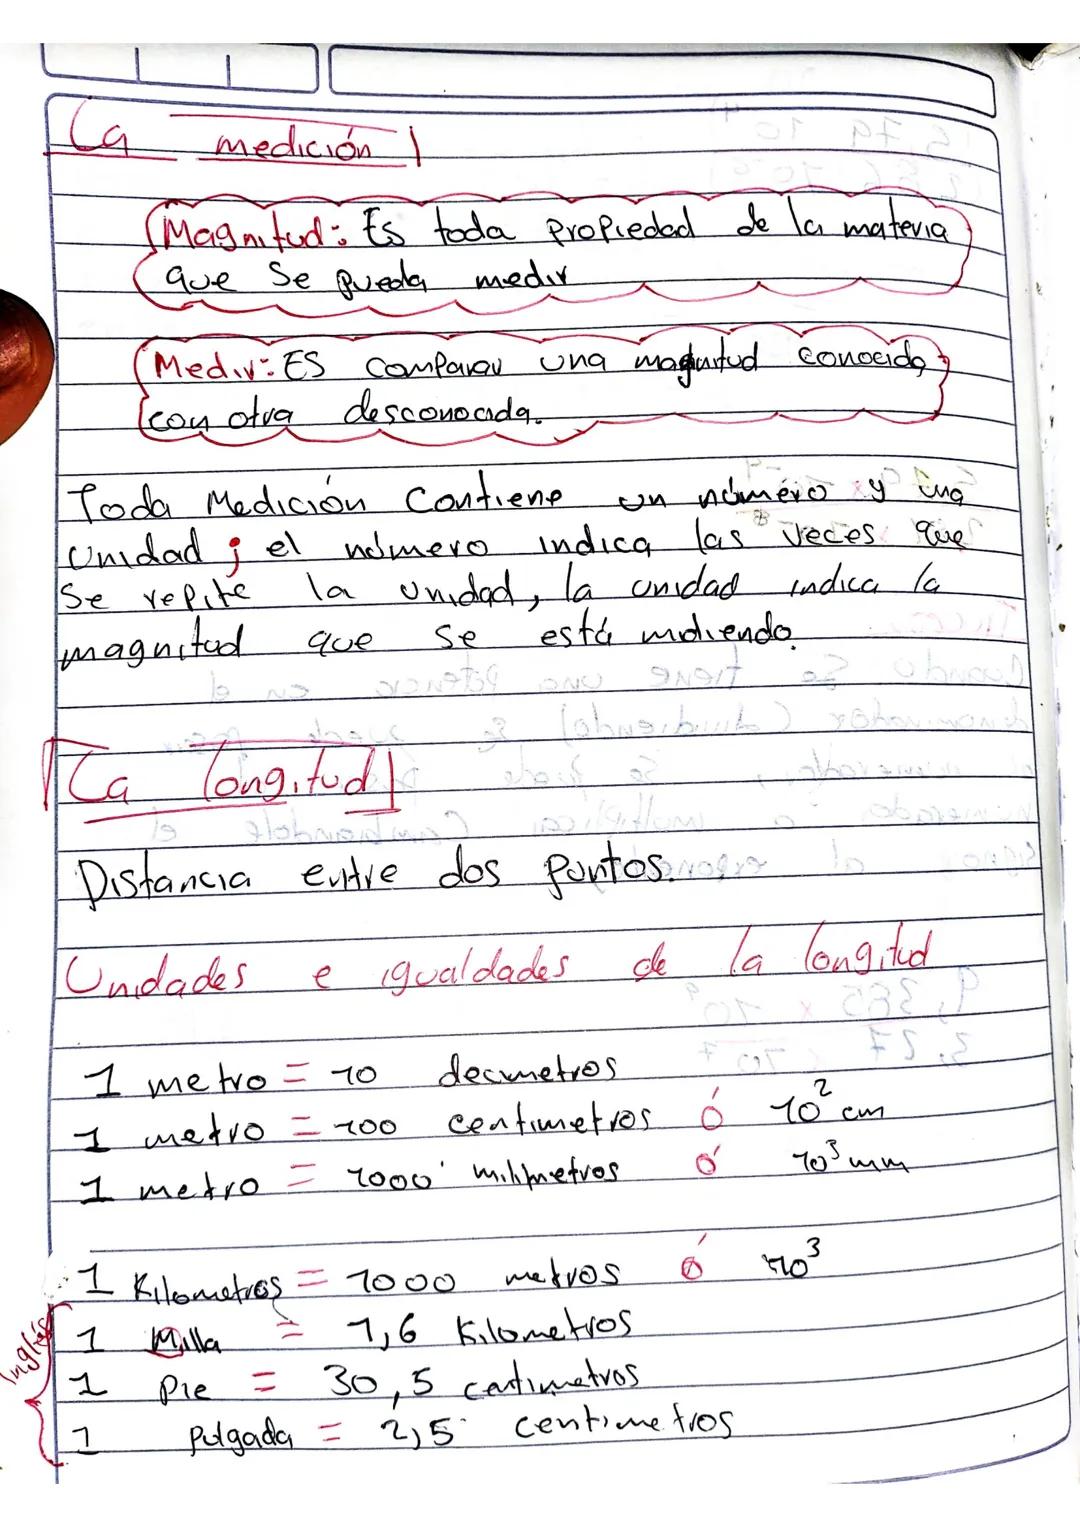 La medición
Magnitud: Es toda propiedad de la materia
que se pueda medir
Medir: ES comparar una magnitud conocida
con otra desconocida.
Toda Medición Contiene un número y una
Unidad; el número indica las veces que
Se repite la unidad, la unidad indica la
magnitud que se está midiendo.
La longitud
Distancia entre dos puntos.
Unidades e igualdades de la longitud
1 metro = 10 decimetros
1 metro = 100 centimetros ó 10² cm
1 metro = 1000 milimetros ó 10³ mm
1 Kilometros = 1000 metros ó 10³
Inglés
1 Milla = 1,6 Kilometros
1 Pie = 30,5 centimetros
1 Pulgada = 2,5 centimetros